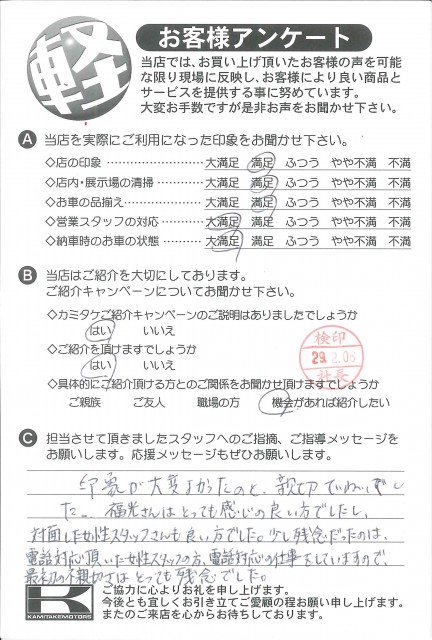 軽
お客様アンケート
当店では、お買い上げ頂いたお客様の声を可能
な限り現場に反映し、お客様により良い商品と
サービスを提供する事に努めています。
大変お手数ですが是非お声をお聞かせ下さい。
A 当店を実際にご利用になった印象をお聞かせ下さい。
◇店の印象 ………………… 大満足 満足 ふつう やや不満 不満
◇店内・展示場の清掃 ………… 大満足 満足 ふつう やや不満 不満
◇お車の品揃え ……………… 大満足 満足 ふつう やや不満 不満
◇営業スタッフの対応 ………… 大満足 満足 ふつう やや不満 不満
◇納車時のお車の状態 ………… 大満足 満足 ふつう やや不満 不満
B 当店はご紹介を大切にしております。
ご紹介キャンペーンについてお聞かせ下さい。
◇カミタケご紹介キャンペーンのご説明はありましたでしょうか
はい いいえ
◇ご紹介を頂けますでしょうか
はい いいえ
検印
29. 2. 06
社長
◇具体的にご紹介頂ける方とのご関係をお聞かせ頂けますでしょうか
ご親族 ご友人 職場の方 機会があれば紹介したい
C 担当させて頂きましたスタッフへのご指摘、ご指導メッセージを
お願いします。応援メッセージもぜひお願いします。
印象が大変よかったのと、親切でし
た。福光さんはとっても感じの良い方でしたし、
対面した女性スタッフさんも良い方でした。少し残念だったのは、
電話対応頂いた女性スタッフの方、電話対応の仕事をしていますので、
最初の不親切さはとっても残念でした。
K
KAMITAKEMOTORS
ご協力に心よりお礼を申し上げます。
今後とも宜しくお引き立てご愛顧の程お願い申し上げます。
またのご来店を心からお待ちしております。